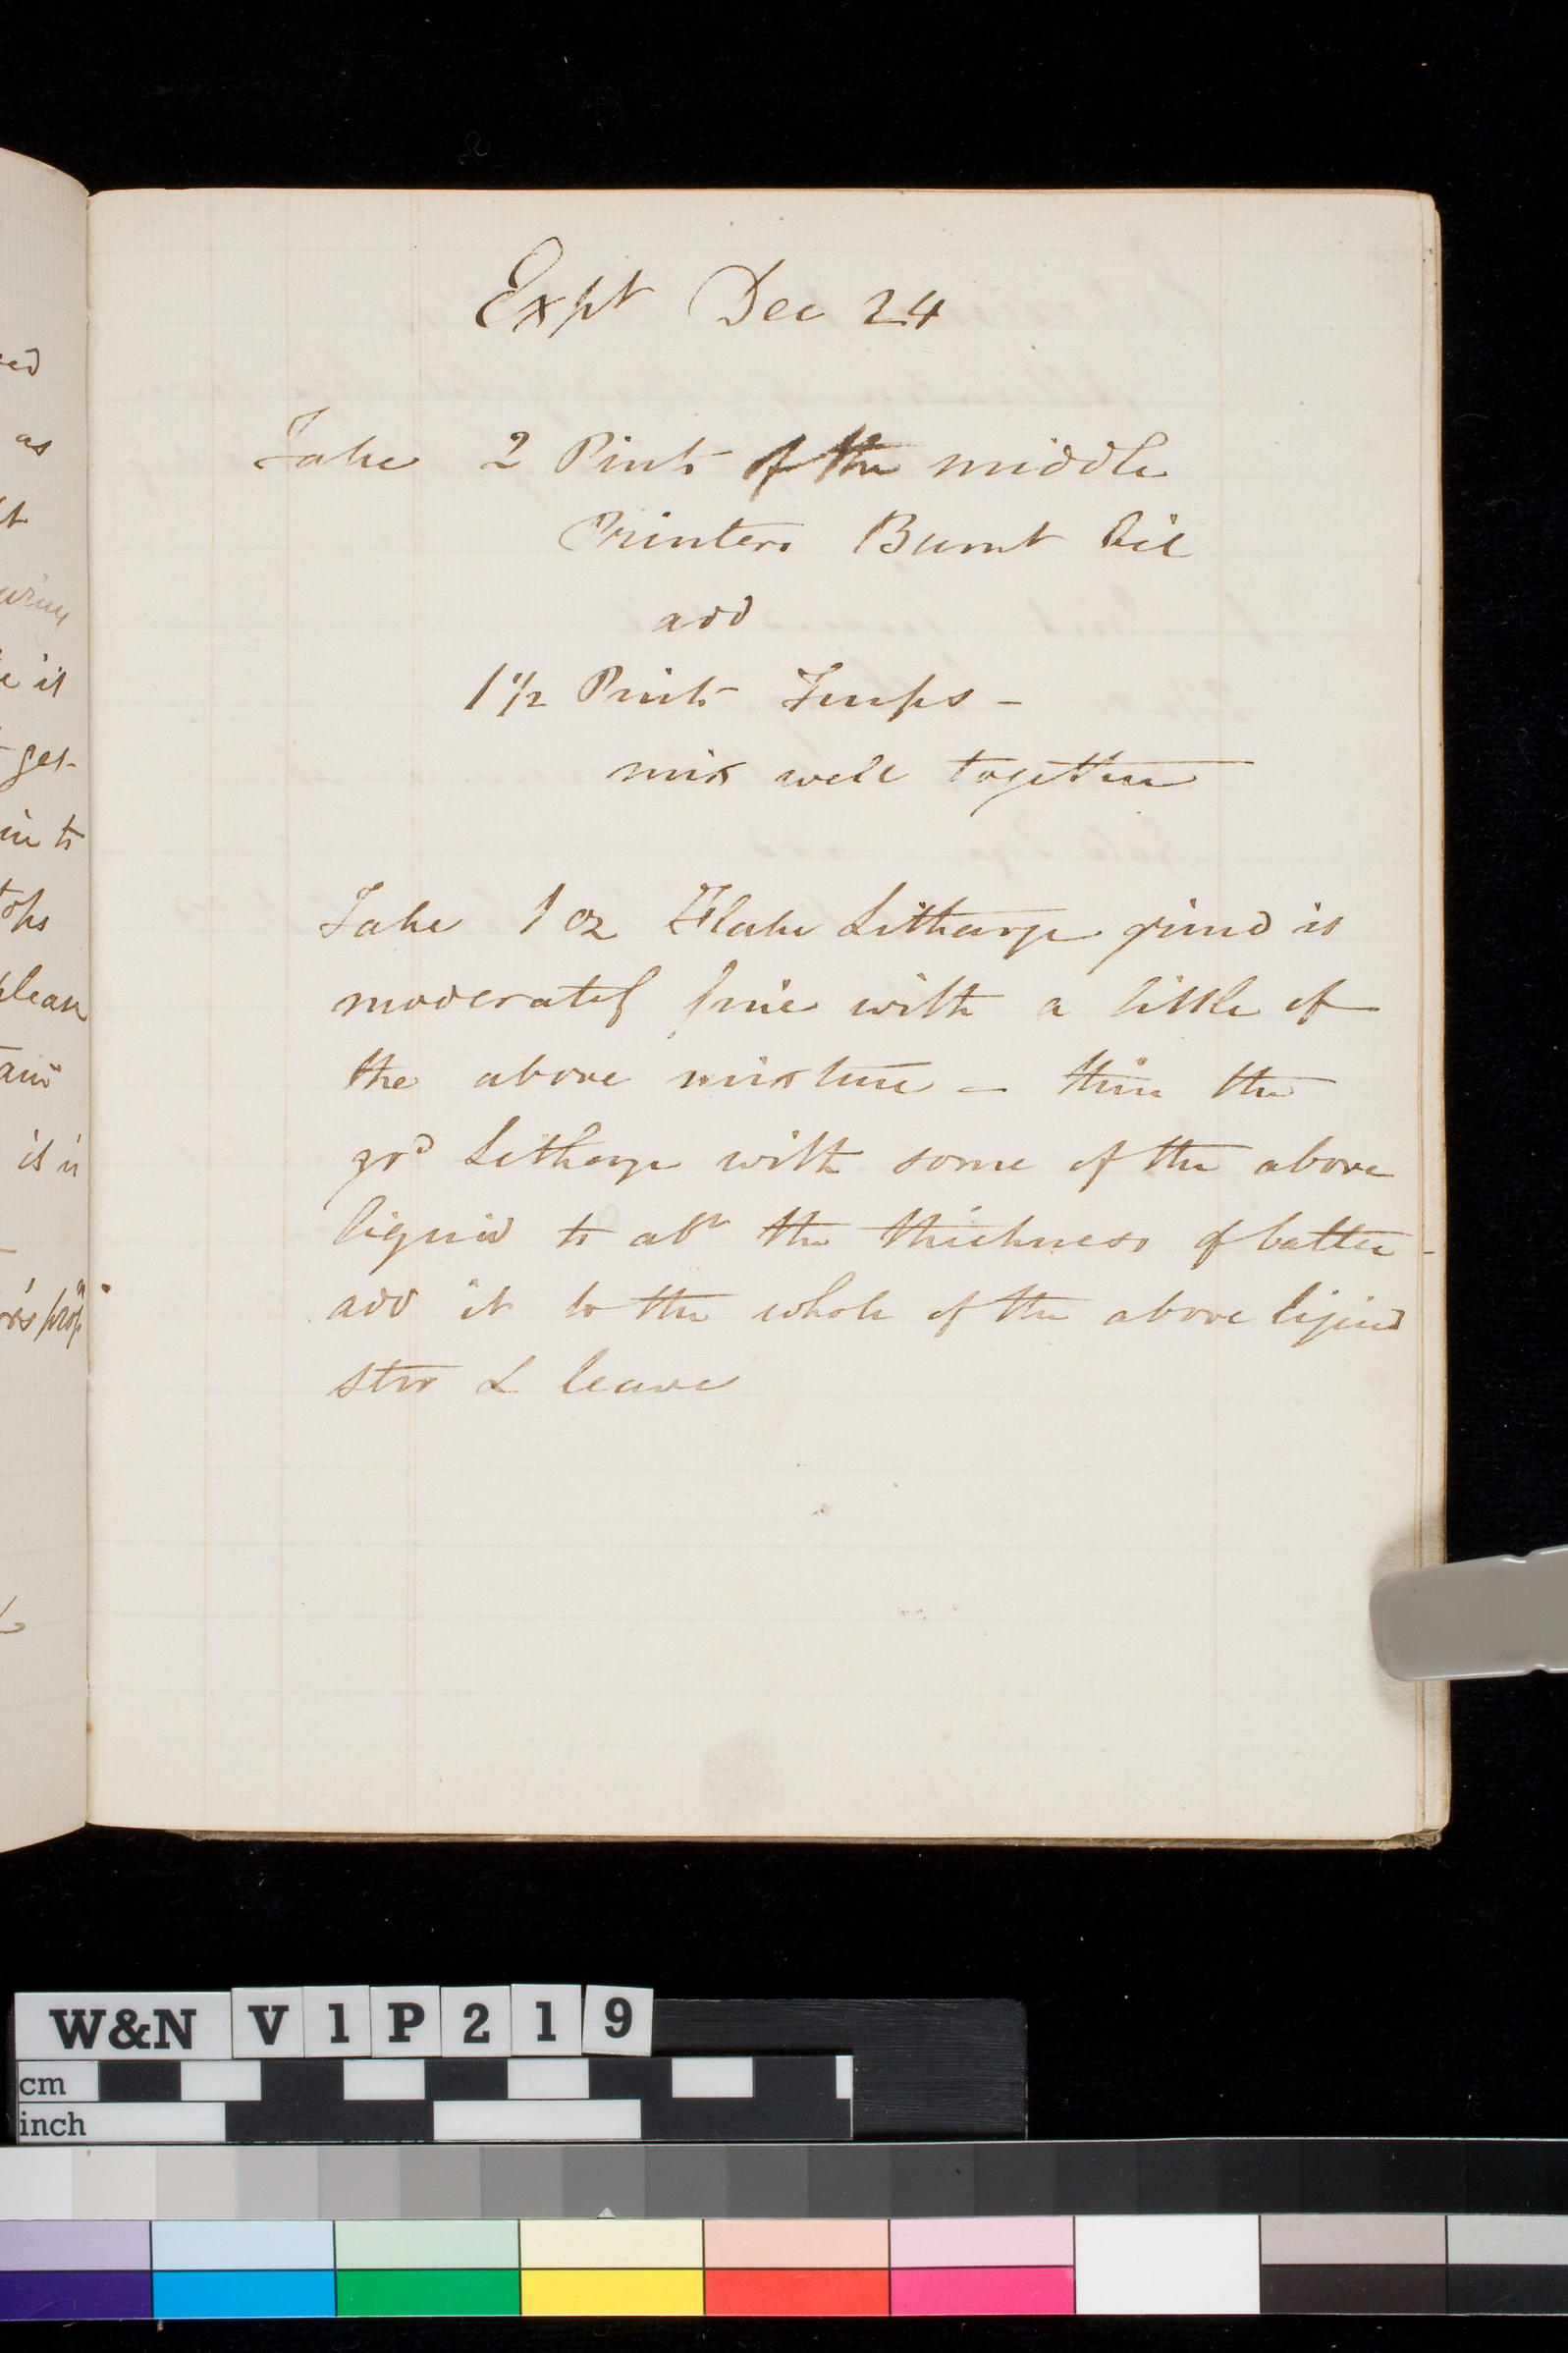 Expt Dec 24
Take 2 Pints of the middle
Printers Burnt Oil
add
1 1/2 Pints Turps -
mix well together
Take 1 oz Flake Litharge grind it
moderately fine with a little of
the above mixture - thin the
grd Litharge with some of the above
liquid to abt the thickness of batter -
add it to the whole of the above liquid
stir & leave
ed
as
it
get
in to
tops
please
it is
W&N V1P219
cm
inch